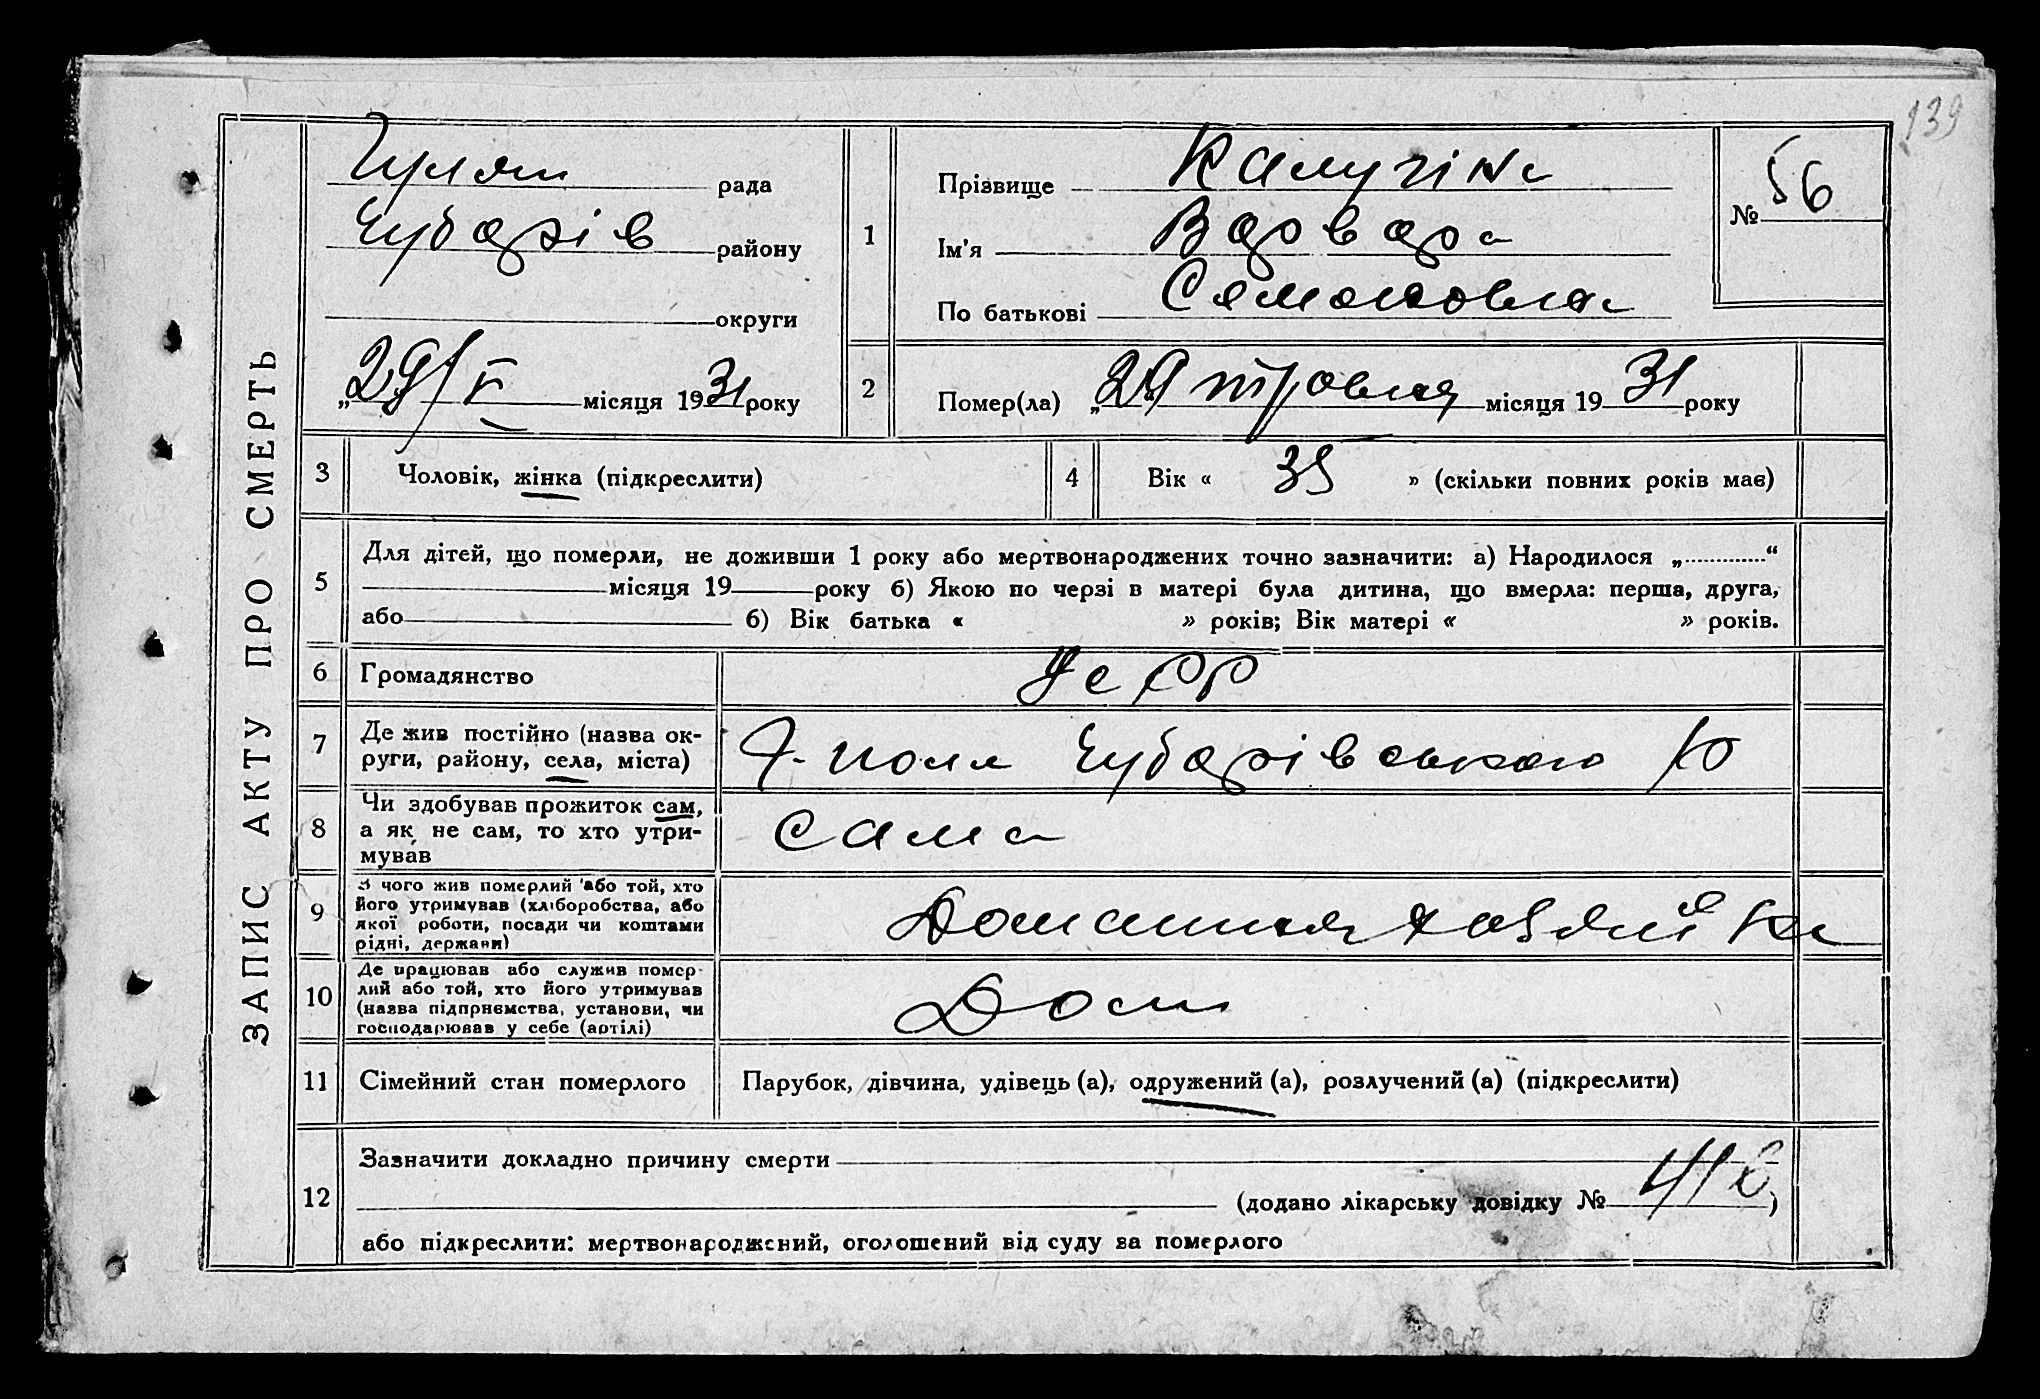 139
ЗАПИС АКТУ ПРО СМЕРТЬ
Гуляй рада
Чубарів району
округи
„29/V місяця 1931 року
1
Прізвище Калугіна
Ім'я Варвара
По батькові Семеновна
№ 56
2
Помер(ла) „29 травня місяця 1931 року
3
Чоловік, жінка (підкреслити)
4
Вік « 35 » (скільки повних років має)
5
Для дітей, що померли, не доживши 1 року або мертвонароджених точно зазначити: а) Народилося „............“
місяця 19 року б) Якою по черзі в матері була дитина, що вмерла: перша, друга,
або б) Вік батька « » років; Вік матері « » років.
6
Громадянство
УСРР
7
Де жив постійно (назва ок-
руги, району, села, міста)
Г-поля Чубарівського
8
Чи здобував прожиток сам,
а як не сам, то хто утри-
мував
сама
9
З чого жив померлий або той, хто
його утримував (хліборобства, або
якої роботи, посади чи коштами
рідні, держави)
Домашня хазяйка
10
Де працював або служив помер-
лий або той, хто його утримував
(назва підприємства, установи, чи
господарював у себе (артілі)
Дом
11
Сімейний стан померлого
Парубок, дівчина, удівець (а), одружений (а), розлучений (а) (підкреслити)
12
Зазначити докладно причину смерти
(додано лікарську довідку № )
або підкреслити: мертвонароджений, оголошений від суду за померлого